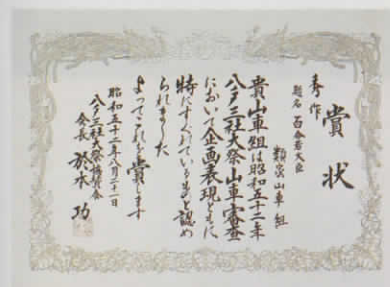 賞状
秀作
題名 百合若大臣
類家山車組
貴山車組は昭和五十二年
八戸三社大祭山車審査
において企画表現ともに
特にすぐれているものと認め
られました
よってこれを賞します
昭和五十二年八月二十一日
八戸三社大祭協賛会
会長 鈴木 功